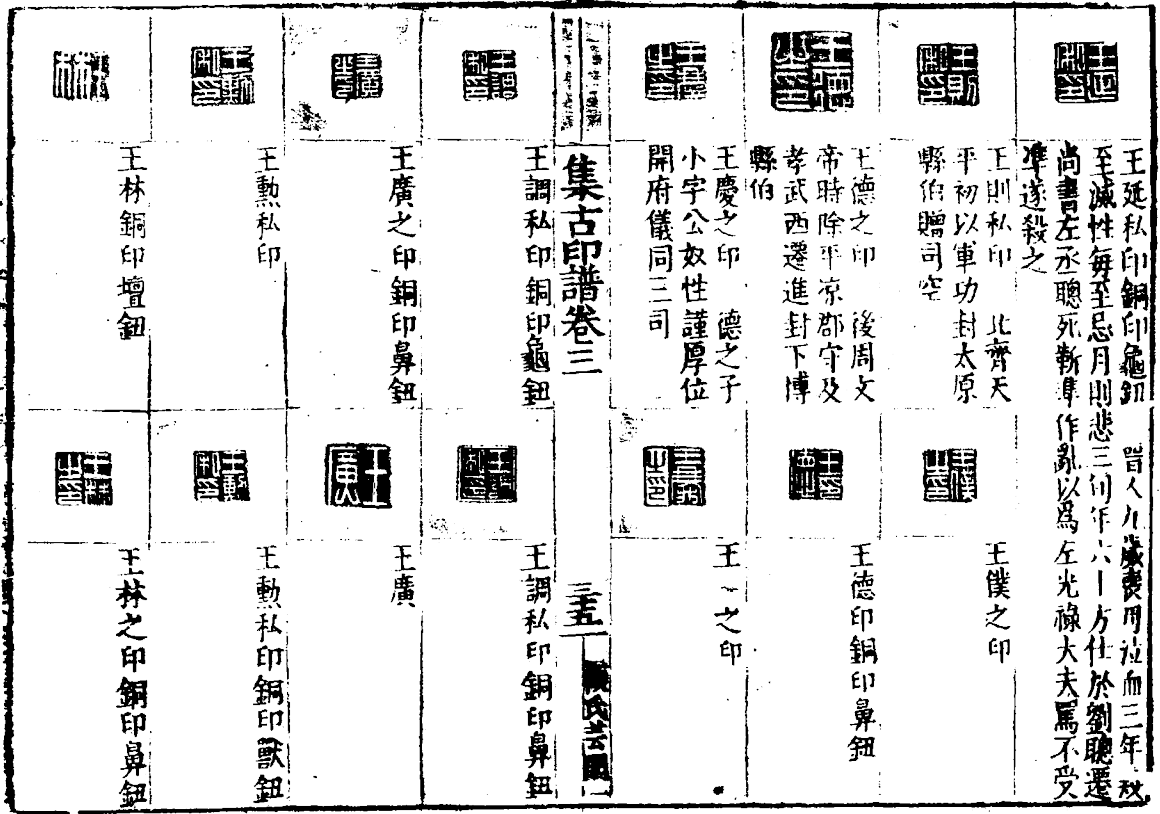 王延私印銅印龜鈕 晉人九歲喪母泣血三年
至滅性每至忌月則悲三旬年六十方仕於劉聰遷
尚書左丞聰死靳準作亂以爲左光祿大夫罵不受
準遂殺之
王則私印 北齊天
平初以軍功封太原
縣伯贈司空
王僕之印
王德之印 後周文
帝時除平凉郡守及
孝武西遷進封下博
縣伯
王德印銅印鼻鈕
王慶之印 德之子
小字公奴性謹厚位
開府儀同三司
王 之印
集古印譜卷三
三十五
顧氏芸閣
王調私印銅印龜鈕
王調私印銅印鼻鈕
王廣之印銅印鼻鈕
王廣
王勲私印
王勲私印銅印獸鈕
王林銅印壇鈕
王林之印銅印鼻鈕